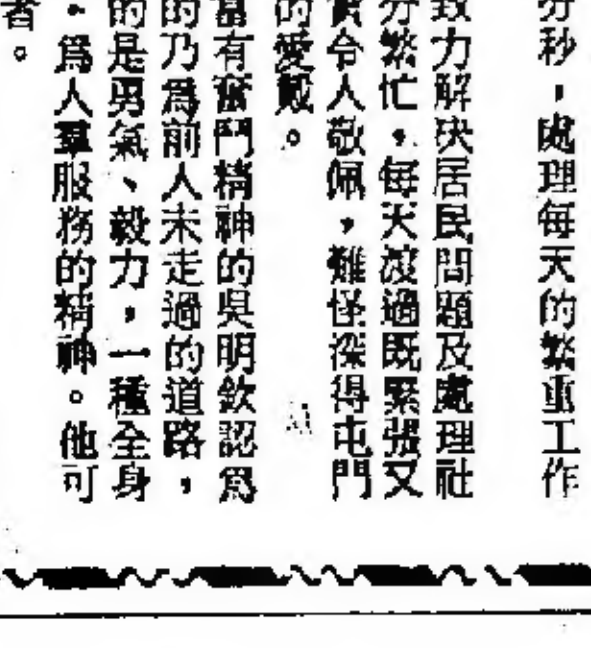 分秒，處理每天的繁重工作
致力解決居民問題及處理社
分繁忙，每天渡過既緊張又
實令人敬佩，難怪深得屯門
的愛戴。
富有奮鬥精神的吳明欽認爲
的乃爲前人未走過的道路，
的是勇氣、毅力，一種全身
，爲人羣服務的精神。他可
者。